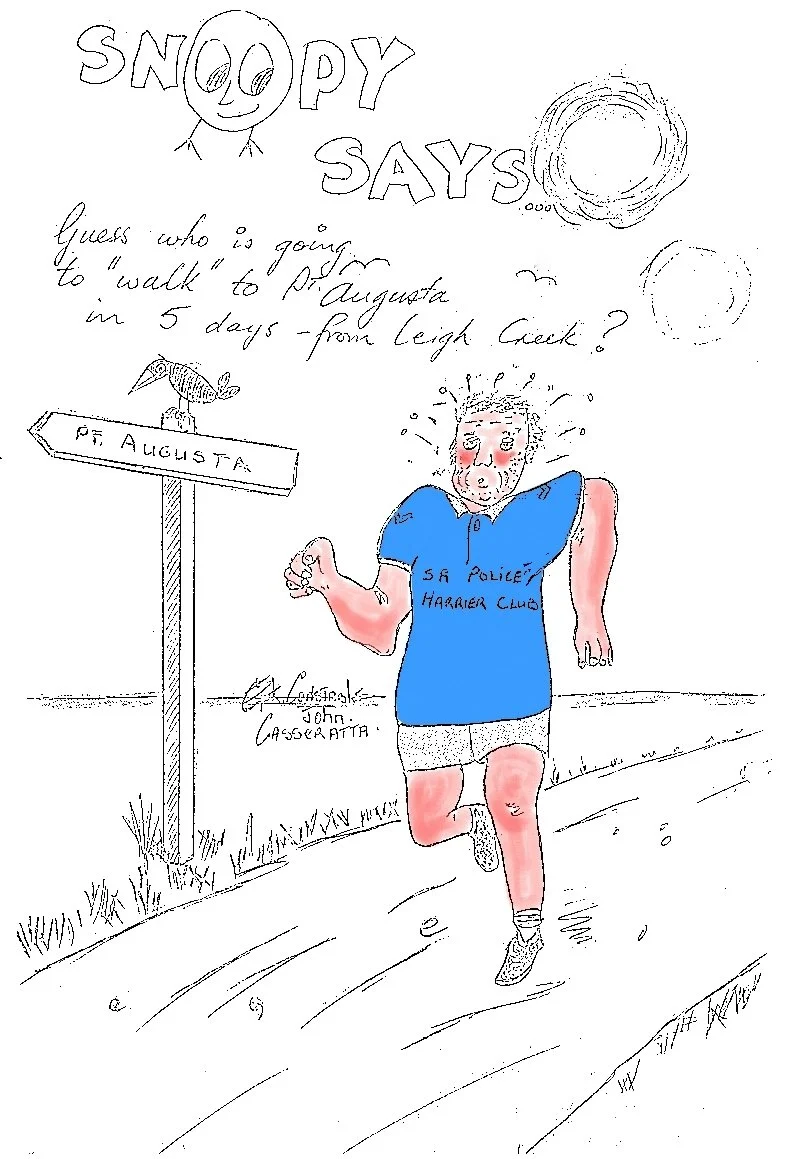 SNOOPY
SAYS...
Guess who is going
to "walk" to Pt. Augusta
in 5 days - from Leigh Creek ?
PT. AUGUSTA
SA POLICE
HARRIER CLUB
John.
CASSERATTA.